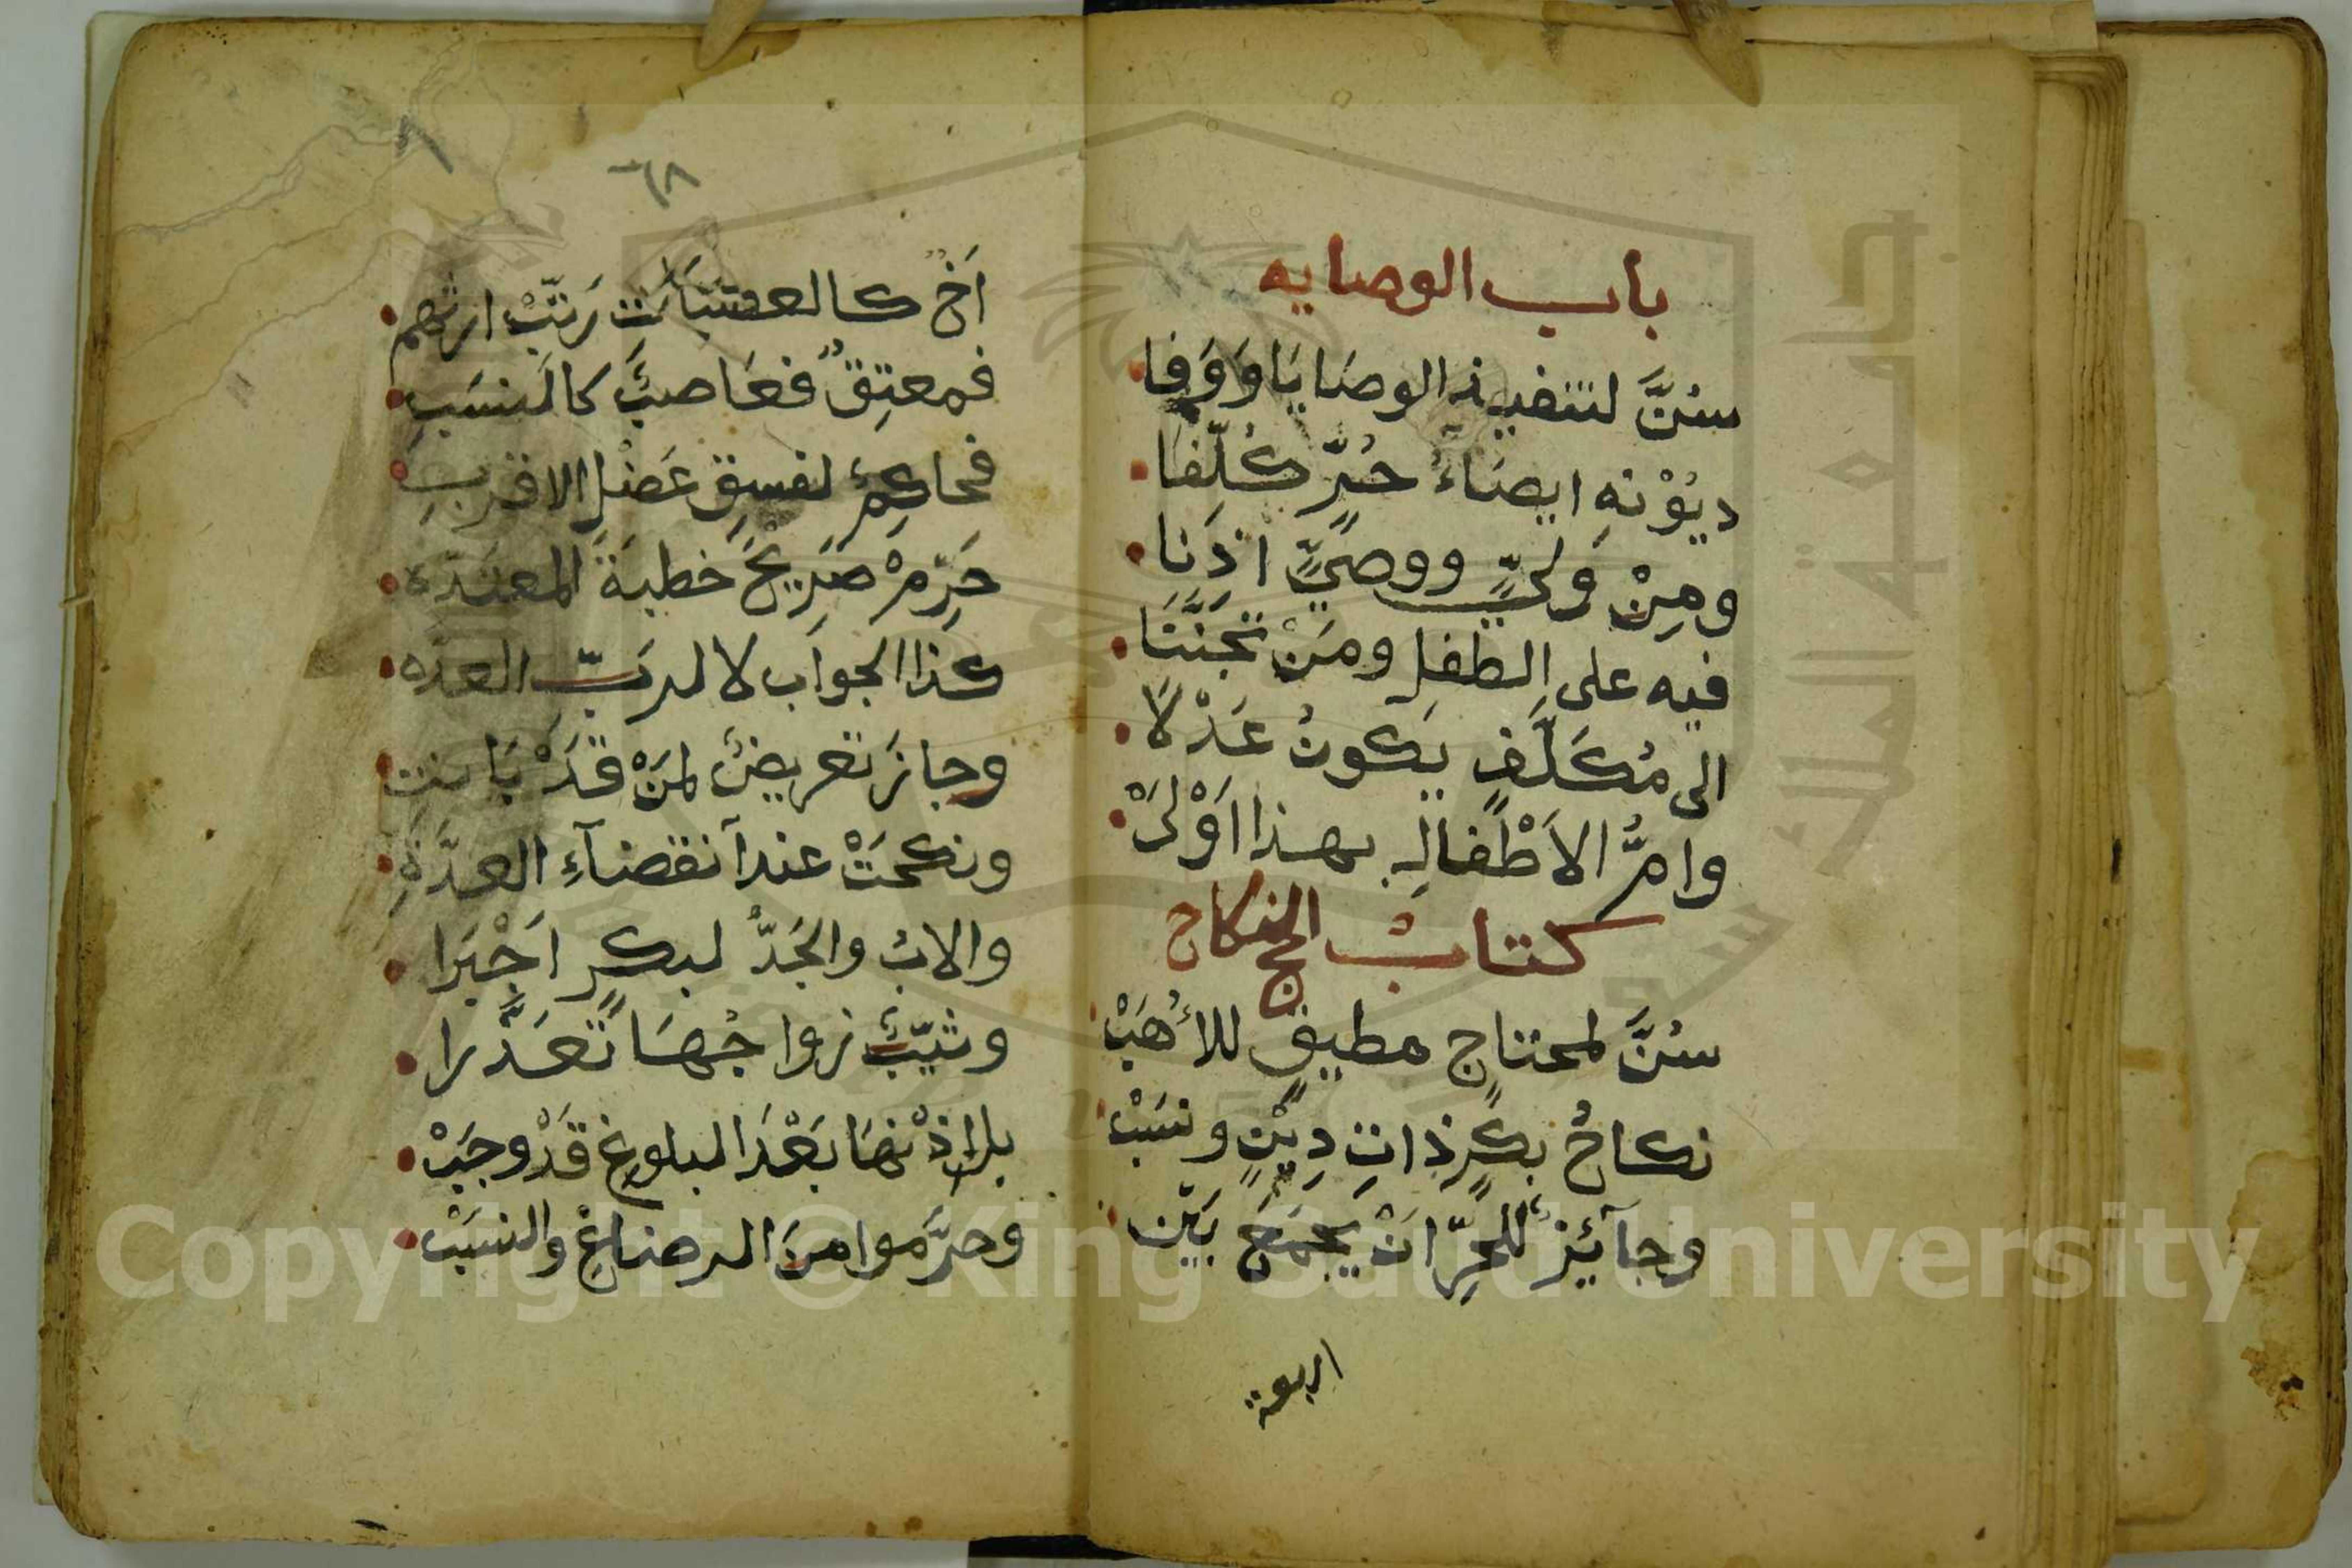 باب الوصايه
سُنَّ لتنفيذ الوصَايَا وَوَفا
ديُوْنهِ ايصَاءُ حُرٍّ كُلِّفَا
ومِنْ وَليٍّ ووصيٍّ اذنَا
فيه على الطفلِ ومَنْ تجَنَّنَا
الى مُكَلَّفٍ يَكونُ عَدْلاً
وامُّ الاَطْفالِ بهذا اَوْلَىْ
كتابُ النكاح
سُنَّ لمحتاجٍ مطيقٍ للأُهَبْ
نكاحُ بكرٍ ذاتِ دِيْنٍ ونسَبْ
وجآئِزٌ للحُرِّ انْ يَجمَعَ بَيْن
اربعة
٦٨
اَخٍ كالعصَبَات رَتِّبْ ارثهم
فمعتِقٌ فعَاصبٌ كالنسَبِ
فحاكِمٌ لفسقِ عَضْلِ الاقربِ
حَرِّمْ صَرِيْحَ خطبةَ المعتدّه
كذا الجوابَ لا لربِّ العدّه
وجازَ تعريضٌ لمَنْ قدْ بَانت
ونكحَتْ عند آنقضآءِ العدَّةِ
والابُ والجَدُّ لبكرٍ اَجْبَرا
وثيِّبٌ زواجُهَا تعَذَّرا
بل اذْنهَا بَعْدَ البلوغِ قَدْ وجَبْ
وحَرَّموا منَ الرضاعِ والنسَبْ
Copyright © King Saud University